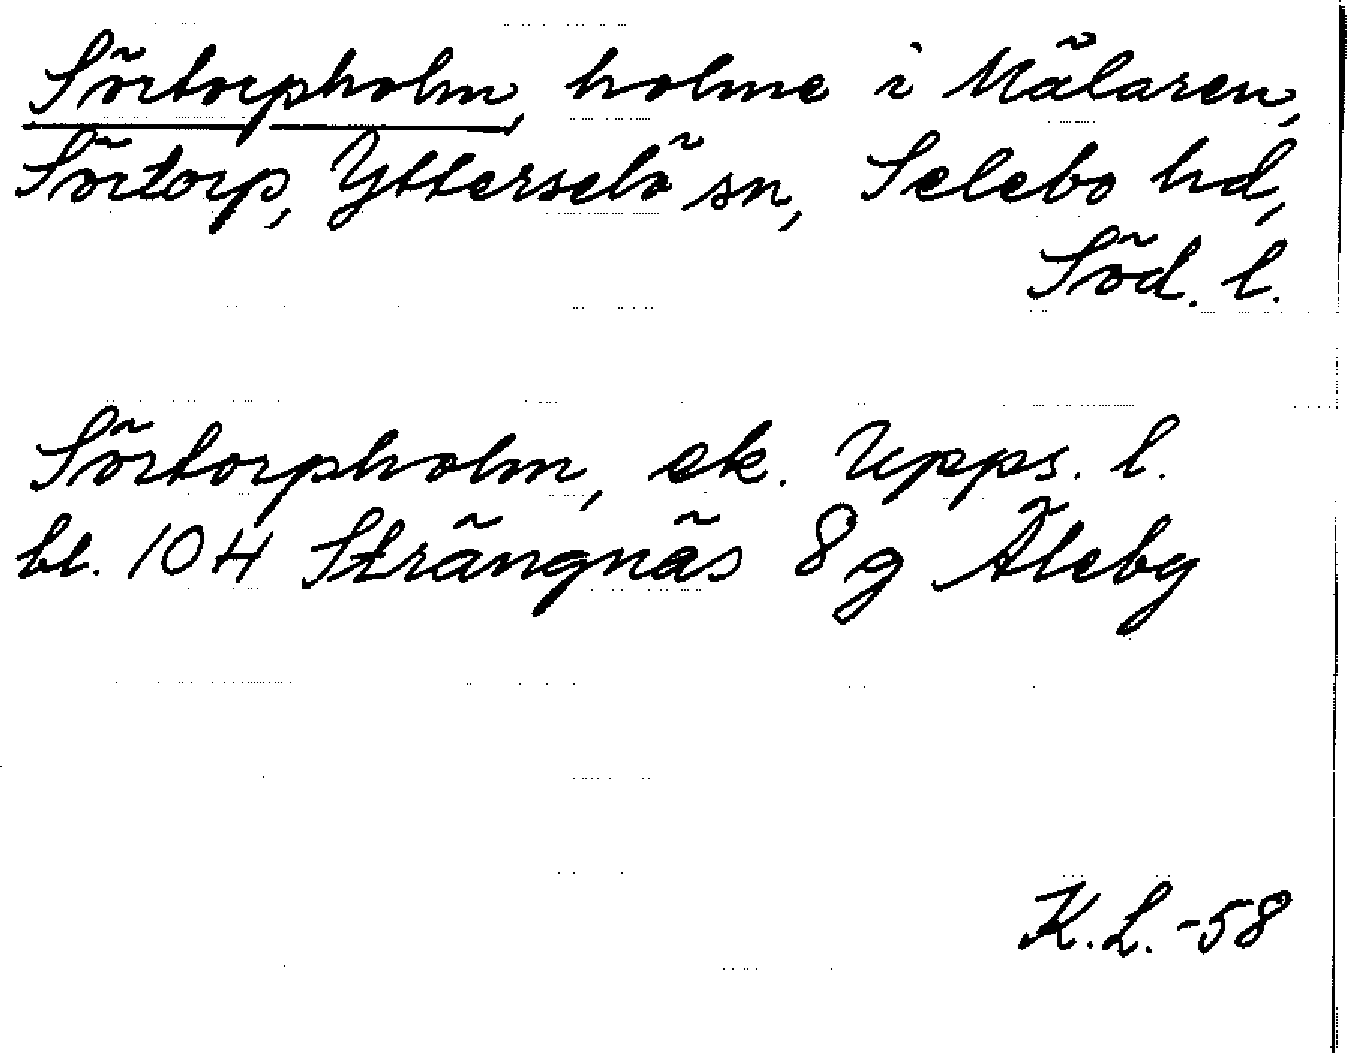 Sörtorpholm, holme i Mälaren,
Sörtorp, Ytterselö sn, Selebo hd,
Söd. l.
Sörtorpholm, ek. Upps. l.
bl. 104 Strängnäs 8g Äleby
K.L.-58